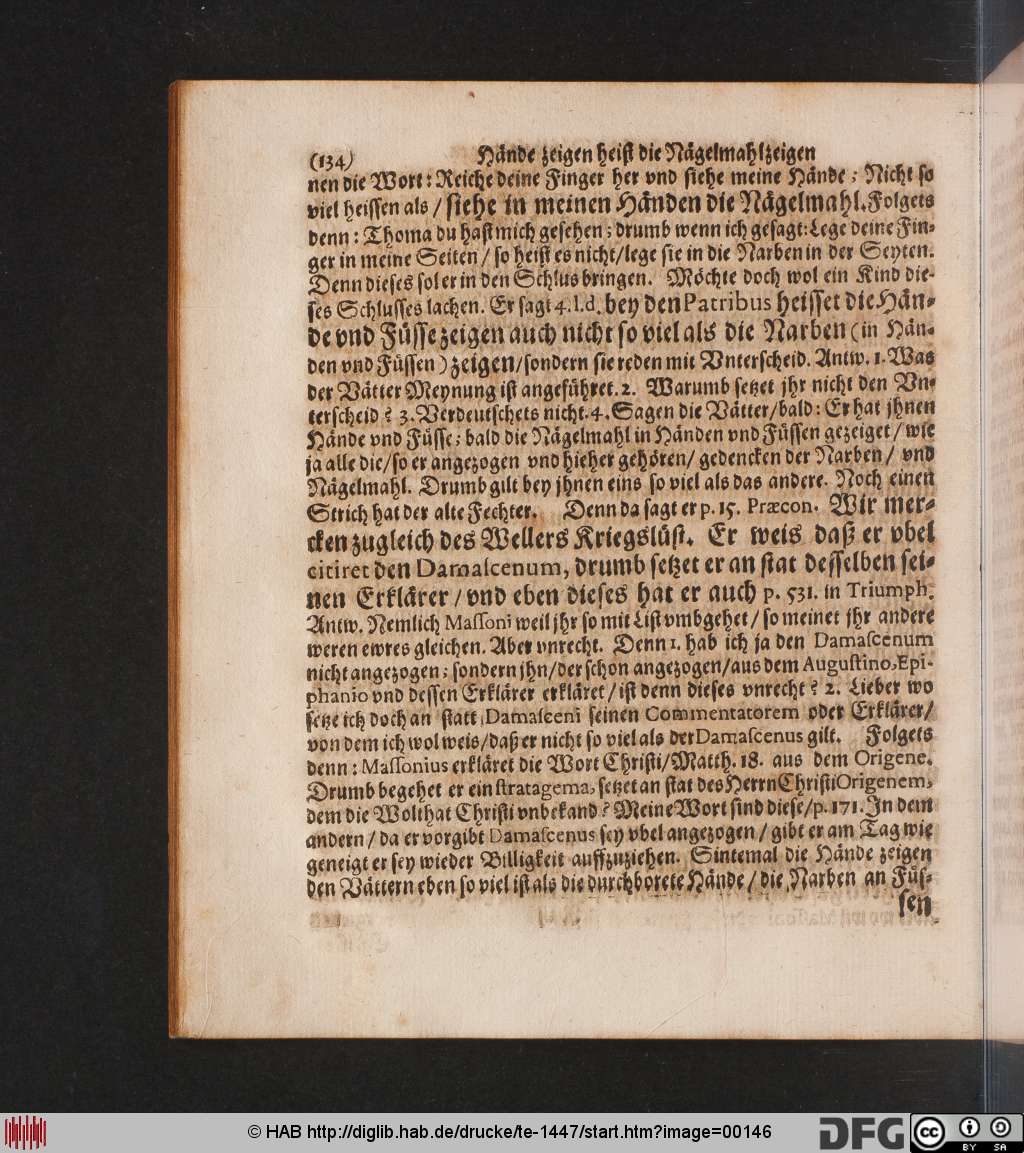 (134) Hände zeigen heist die Nägelmahlzeigen
nen die Wort: Reiche deine Finger her vnd siehe meine Hände; Nicht so
viel heissen als / siehe in meinen Händen die Nägelmahl. Folgets
denn: Thoma du hast mich gesehen; drumb wenn ich gesagt: Lege deine Fin⸗
ger in meine Seiten / so heist es nicht/lege sie in die Narben in der Seyten.
Denn dieses sol er in den Schlus bringen. Möchte doch wol ein Kind die⸗
ses Schlusses lachen. Er sagt 4. l. d. bey den Patribus heisset die Hän⸗
de vnd Füsse zeigen auch nicht so viel als die Narben (in Hän⸗
den vnd Füssen) zeigen/sondern sie reden mit Vnterscheid. Antw. 1. Was
der Vätter Meynung ist angeführet. 2. Warumb setzet jhr nicht den Vn⸗
terscheid? 3. Verdeutschets nicht. 4. Sagen die Vätter/bald: Er hat jhnen
Hände vnd Füsse; bald die Nägelmahl in Händen vnd Füssen gezeiget / wie
ja alle die/so er angezogen vnd hieher gehören/ gedencken der Narben / vnd
Nägelmahl. Drumb gilt bey jhnen eins so viel als das andere. Noch einen
Strich hat der alte Fechter. Denn da sagt er p. 15. Præcon. Wir mer⸗
cken zugleich des Wellers Kriegslüst. Er weis daß er vbel
citiret den Damascenum, drumb setzet er an stat desselben sei⸗
nen Erklärer / vnd eben dieses hat er auch p. 531. in Triumph.
Antw. Nemlich Massoni weil jhr so mit List vmbgehet / so meinet jhr andere
weren ewres gleichen. Aber vnrecht. Denn 1. hab ich ja den Damascenum
nicht angezogen; sondern jhn/der schon angezogen/aus dem Augustino, Epi-
phanio vnd dessen Erklärer erkläret / ist denn dieses vnrecht? 2. Lieber wo
setze ich doch an statt Damasceni seinen Commentatorem oder Erklärer/
von dem ich wol weis/daß er nicht so viel als der Damascenus gilt. Folgets
denn: Massonius erkläret die Wort Christi/Matth. 18. aus dem Origene.
Drumb begehet er ein stratagema, setzet an stat des Herrn Christi Origenem,
dem die Wolthat Christi vnbekand? Meine Wort sind diese/p. 171. In dem
andern / da er vorgibt Damascenus sey vbel angezogen / gibt er am Tag wie
geneigt er sey wieder Billigkeit auffzuziehen. Sintemal die Hände zeigen
den Vättern eben so viel ist als die durchborete Hände / die Narben an Füs⸗
sen
© HAB http://diglib.hab.de/drucke/te-1447/start.htm?image=00146
DFG
cc
BY SA